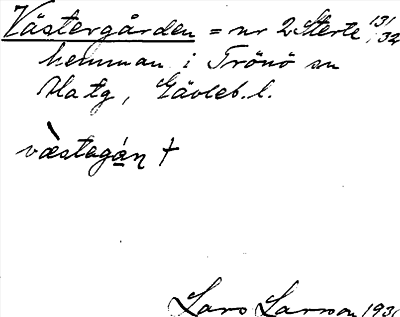 Västergården = nr 2 Sterte 131/32
hemman i Trönö sn
Hatg, Gävleb. l.
væstagán †
Lars Larsson 1931